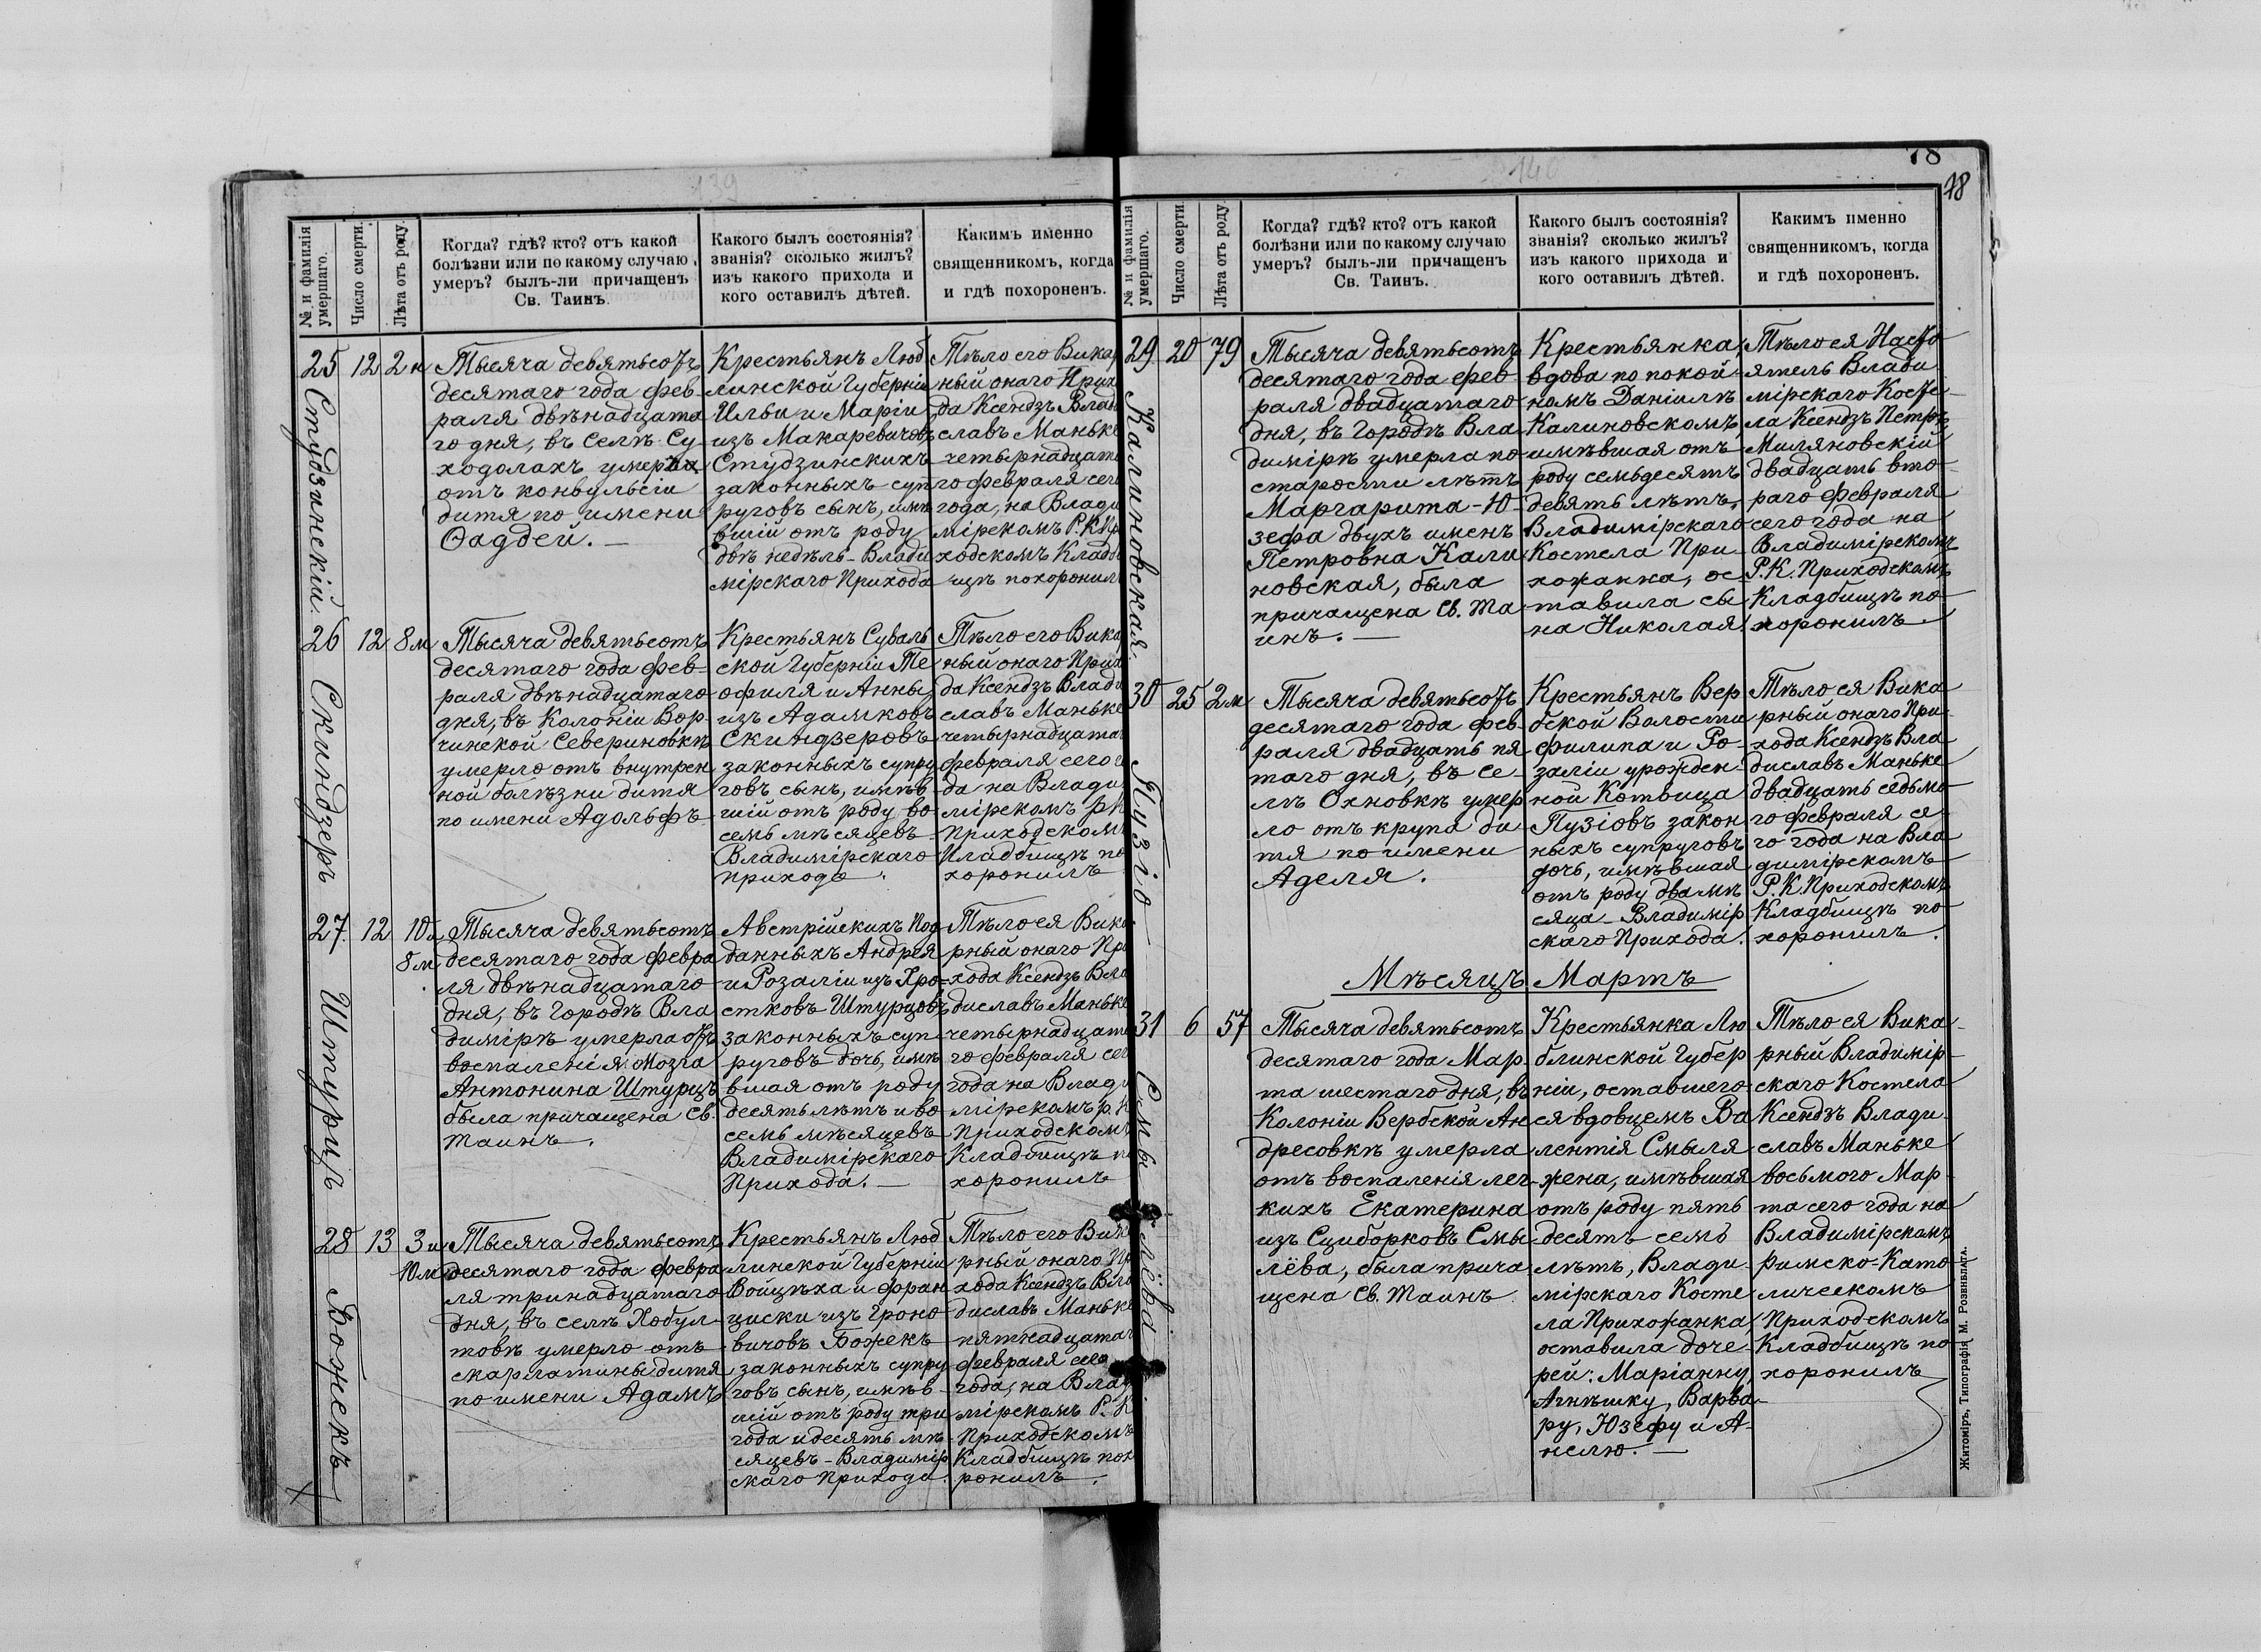 139
№ и фамилія умершаго.
Число смерти.
Лѣта отъ роду.
Когда? гдѣ? кто? отъ какой
болѣзни или по какому случаю
умеръ? былъ-ли причащенъ
Св. Таинъ.
Какого былъ состоянія?
званія? сколько жилъ?
изъ какого прихода и
кого оставилъ дѣтей.
Какимъ именно
священникомъ, когда
и гдѣ похороненъ.
25
Студзинскій.
12
2 н
Тысяча девятьсотъ
десятаго года фев-
раля двѣнадцата
го дня, въ Селѣ Су-
ходолахъ умерло
отъ конвульсіи
дитя по имени
Фаддей.
Крестьянъ Люб
линской Губерніи
Ильи и Маріи
изъ Макаревичовъ
Студзинскихъ
законныхъ суп
руговъ сынъ, имѣ
вшій отъ роду
двѣ недѣль - Влади
мірскаго Прихода
Тѣло его Викар
ный онаго Прих
да Ксендзъ Влади
славъ Маньке
четырнадцата
го февраля сего
года, на Влади
мірскомъ Р. К. При
ходскомъ Кладб
ищѣ похоронил
26
Скиндзеръ
12
8 м
Тысяча девятьсотъ
десятаго года фев-
раля двѣнадцатаго
дня, въ Колоніи Вор-
чинской Севериновкѣ
умерло отъ внутрен
ной болѣзни дитя
по имени Адольфъ
Крестьянъ Суваль
ской Губерніи Те
офиля и Анны,
изъ Адамковъ
Скиндзеровъ
законныхъ супру
говъ сынъ, имѣв
шій отъ роду во
семь мѣсяцевъ
Владимірскаго
прихода.
Тѣло его Вика
ный онаго Прих
да Ксендзъ Влади
славъ Маньке
четырнадцата
февраля сего г
да на Влади
мірскомъ Р К
Приходскомъ
Кладбищѣ по
хоронилъ
27.
Штурцъ
12
10 л
8 м
Тысяча девятьсотъ
десятаго года февра
ля двѣнадцатаго
дня, въ Городѣ Вла
димірѣ умерла отъ
воспаленія мозга
Антонина Штурцъ
была причащена Св.
Таинъ.
Австрійскихъ Под
данныхъ Андрея
и Розаліи изъ Хро-
стковъ Штурцовъ
законныхъ суп
руговъ дочь, имѣ
вшая отъ роду
десять лѣтъ и во
семь мѣсяцевъ
Владимірскаго
Прихода.
Тѣло ея Вика
рный онаго При
хода Ксендзъ Вла
диславъ Маньке
четырнадцата
го февраля сег
года на Влади
мірскомъ Р. К
Приходскомъ
Кладбищѣ п
хоронилъ
28
Божекъ
13
3 и
10 м
Тысяча девятьсотъ
десятаго года февра
ля тринадцатаго
дня, въ селѣ Хобул
товѣ умерло отъ
скарлатины дитя
по имени Адамъ
Крестьянъ Люб
линской Губерніи
Войцѣха и Фран
циски изъ Гроно
вичовъ Божекъ
законныхъ супру
говъ сынъ, имѣв
шій отъ роду три
года и десять мѣ
сяцевъ - Владимір
скаго Прихода.
Тѣло его Вика
рный онаго Пр
хода Ксендзъ Вла
диславъ Маньке
пятнадцатаг
февраля сего
года, на Влад
мірскомъ Р. К
Приходскомъ
Кладбищѣ пох
ронилъ.
140
78
78
№ и фамилія умершаго.
Число смерти.
Лѣта отъ роду.
Когда? гдѣ? кто? отъ какой
болѣзни или по какому случаю
умеръ? былъ-ли причащенъ
Св. Таинъ.
Какого былъ состоянія?
званія? сколько жилъ?
изъ какого прихода и
кого оставилъ дѣтей.
Какимъ именно
священникомъ, когда
и гдѣ похороненъ.
29
Калиновская.
20
79
Тысяча девятьсотъ
десятаго года фев
раля двадцатаго
дня, въ Городѣ Вла
димірѣ умерла по
старости лѣтъ
Маргарита-Ю
зефа двухъ именъ
Петровна Кали
новская, была
причащена Св. Та
инъ.
Крестьянка,
вдова по покой
номъ Даніилѣ
Калиновскомъ,
имѣвшая отъ
роду семьдесятъ
девять лѣтъ,
Владимірскаго
Костела При
хожанка, ос
тавила сы
на Николая.
Тѣло ея Насто
ятель Влади
мірскаго Косте
ла Ксендзъ Петръ
Миляновскій
двадцать вто
раго февраля
сего года на
Владимірскомъ
Р. К. Приходскомъ
Кладбищѣ по
хоронилъ.
30
Пузіо
25
2 м
Тысяча девятьсотъ
десятаго года фев
раля двадцать пя
таго дня, въ се-
лѣ Охновкѣ умер
ло отъ крупа ди
тя по имени
Аделя.
Крестьянъ Вер
бской Волости
Филипа и Ро-
заліи урожден
ной Котвица
Пузіовъ закон
ныхъ супруговъ
дочь, имѣвшая
отъ роду два мѣ
сяца - Владимір
скаго Прихода.
Тѣло ея Вика
рный онаго При-
хода Ксендзъ Вла
диславъ Маньке
двадцать седьмо
го февраля се-
го года на Вла
димірскомъ
Р. К. Приходскомъ
Кладбищѣ по
хоронилъ.
Мѣсяцъ Мартъ
31
Смылёва
6
57
Тысяча девятьсотъ
десятаго года Мар
та шестаго дня, въ
Колоніи Вербской Ан
дресовкѣ умерла
отъ воспаленія лег
кихъ Екатерина
изъ Сциборковъ Смы
лёва, была прича
щена Св. Таинъ
Крестьянка Лю
блинской Губер
ніи, оставшего
ся вдовцемъ Ва
лентія Смыля
жена, имѣвшая
отъ роду пять
десятъ семь
лѣтъ, Влади
мірскаго Косте
ла Прихожанка,
оставила доче-
рей: Маріанну,
Агнѣшку, Варва-
ру, Юзефу и А-
нелю.
Тѣло ея Вика-
рный Владимір-
скаго Костела
Ксендзъ Влади-
славъ Маньке
восьмого Мар
та сего года на
Владимірскомъ
Римско-Като
лическомъ
Приходскомъ
Кладбищѣ по
хоронилъ
Житоміръ, Типографія М. Розенблата.